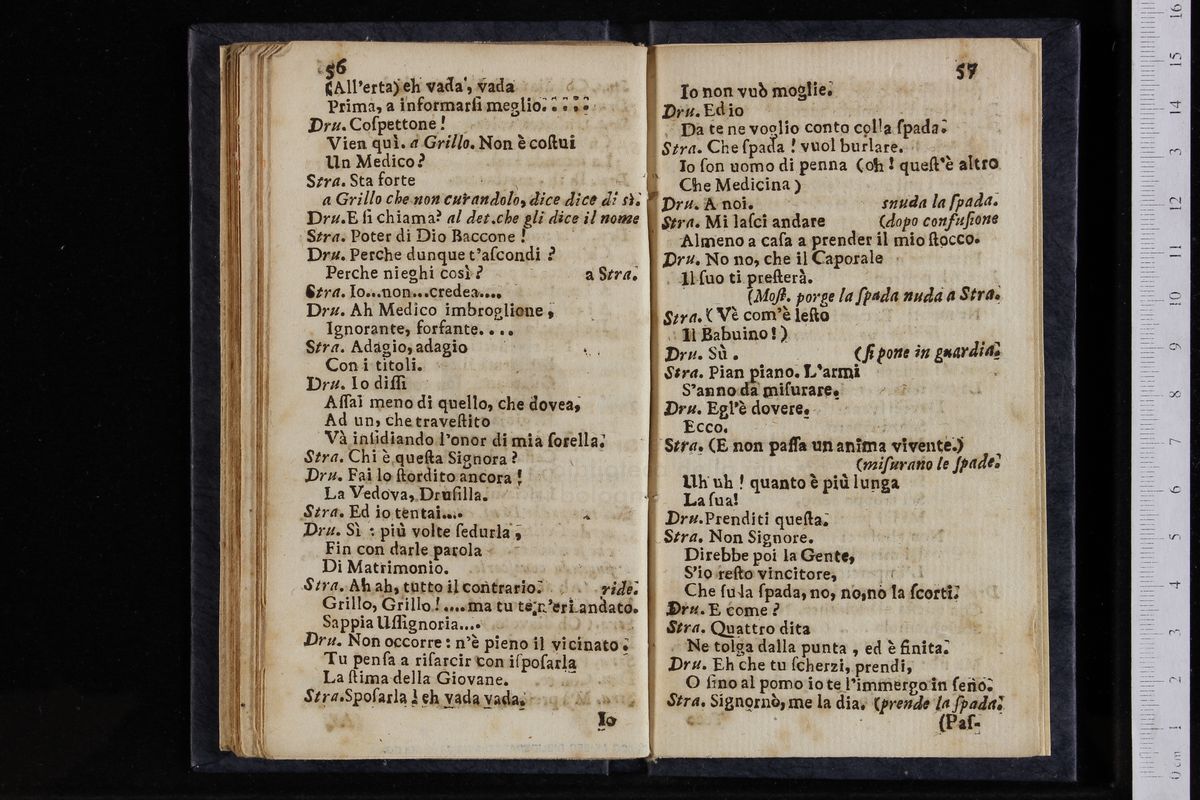 56
(All'erta) eh vada, vada
Prima, a informarſi meglio.:::::
Dru. Coſpettone!
Vien quì. a Grillo. Non è coſtui
Un Medico?
Stra. Sta forte
a Grillo che non curandolo, dice dice di sì.
Dru. E ſi chiama? al det. che gli dice il nome
Stra. Poter di Dio Baccone!
Dru. Perche dunque t'aſcondi?
Perche nieghi così? a Stra.
Stra. Io...non...credea....
Dru. Ah Medico imbroglione,
Ignorante, forfante....
Stra. Adagio, adagio
Con i titoli.
Dru. Io diſſi
Aſſai meno di quello, che dovea,
Ad un, che traveſtito
Và inſidiando l'onor di mia ſorella.
Stra. Chi è queſta Signora?
Dru. Fai lo ſtordito ancora!
La Vedova, Druſilla.
Stra. Ed io tentai....
Dru. Sì: più volte ſedurla,
Fin con darle parola
Di Matrimonio.
Stra. Ah ah, tutto il contrario. ride.
Grillo, Grillo!....ma tu te n'eri andato.
Sappia Uſſignoria....
Dru. Non occorre: n'è pieno il vicinato.
Tu penſa a riſarcir con iſpoſarla
La ſtima della Giovane.
Stra. Spoſarla! eh vada vada.
Io
57
Io non vuò moglie.
Dru. Ed io
Da te ne voglio conto colla ſpada.
Stra. Che ſpada! vuol burlare.
Io ſon uomo di penna (oh! queſt'è altro
Che Medicina)
Dru. A noi. snuda la ſpada.
Stra. Mi laſci andare (dopo confuſione
Almeno a caſa a prender il mio ſtocco.
Dru. No no, che il Caporale
Il ſuo ti preſterà.
(Moſt. porge la ſpada nuda a Stra.
Stra. (Vè com'è leſto
Il Babuino!)
Dru. Sù. (ſi pone in guardia.
Stra. Pian piano. L'armi
S'anno da miſurare.
Dru. Egl'è dovere.
Ecco.
Stra. (E non paſſa un anima vivente.)
(miſurano le ſpade.
Uh uh! quanto è più lunga
La ſua!
Dru. Prenditi queſta.
Stra. Non Signore.
Direbbe poi la Gente,
S'io reſto vincitore,
Che fu la ſpada, no, no, nò la ſcorti.
Dru. E come?
Stra. Quattro dita
Ne tolga dalla punta, ed è finita.
Dru. Eh che tu ſcherzi, prendi,
O ſino al pomo io te l'immergo in ſeno.
Stra. Signornò, me la dia. (prende la ſpada.
(Paſ-
0 cm 1 2 3 4 5 6 7 8 9 10 11 12 13 14 15 16